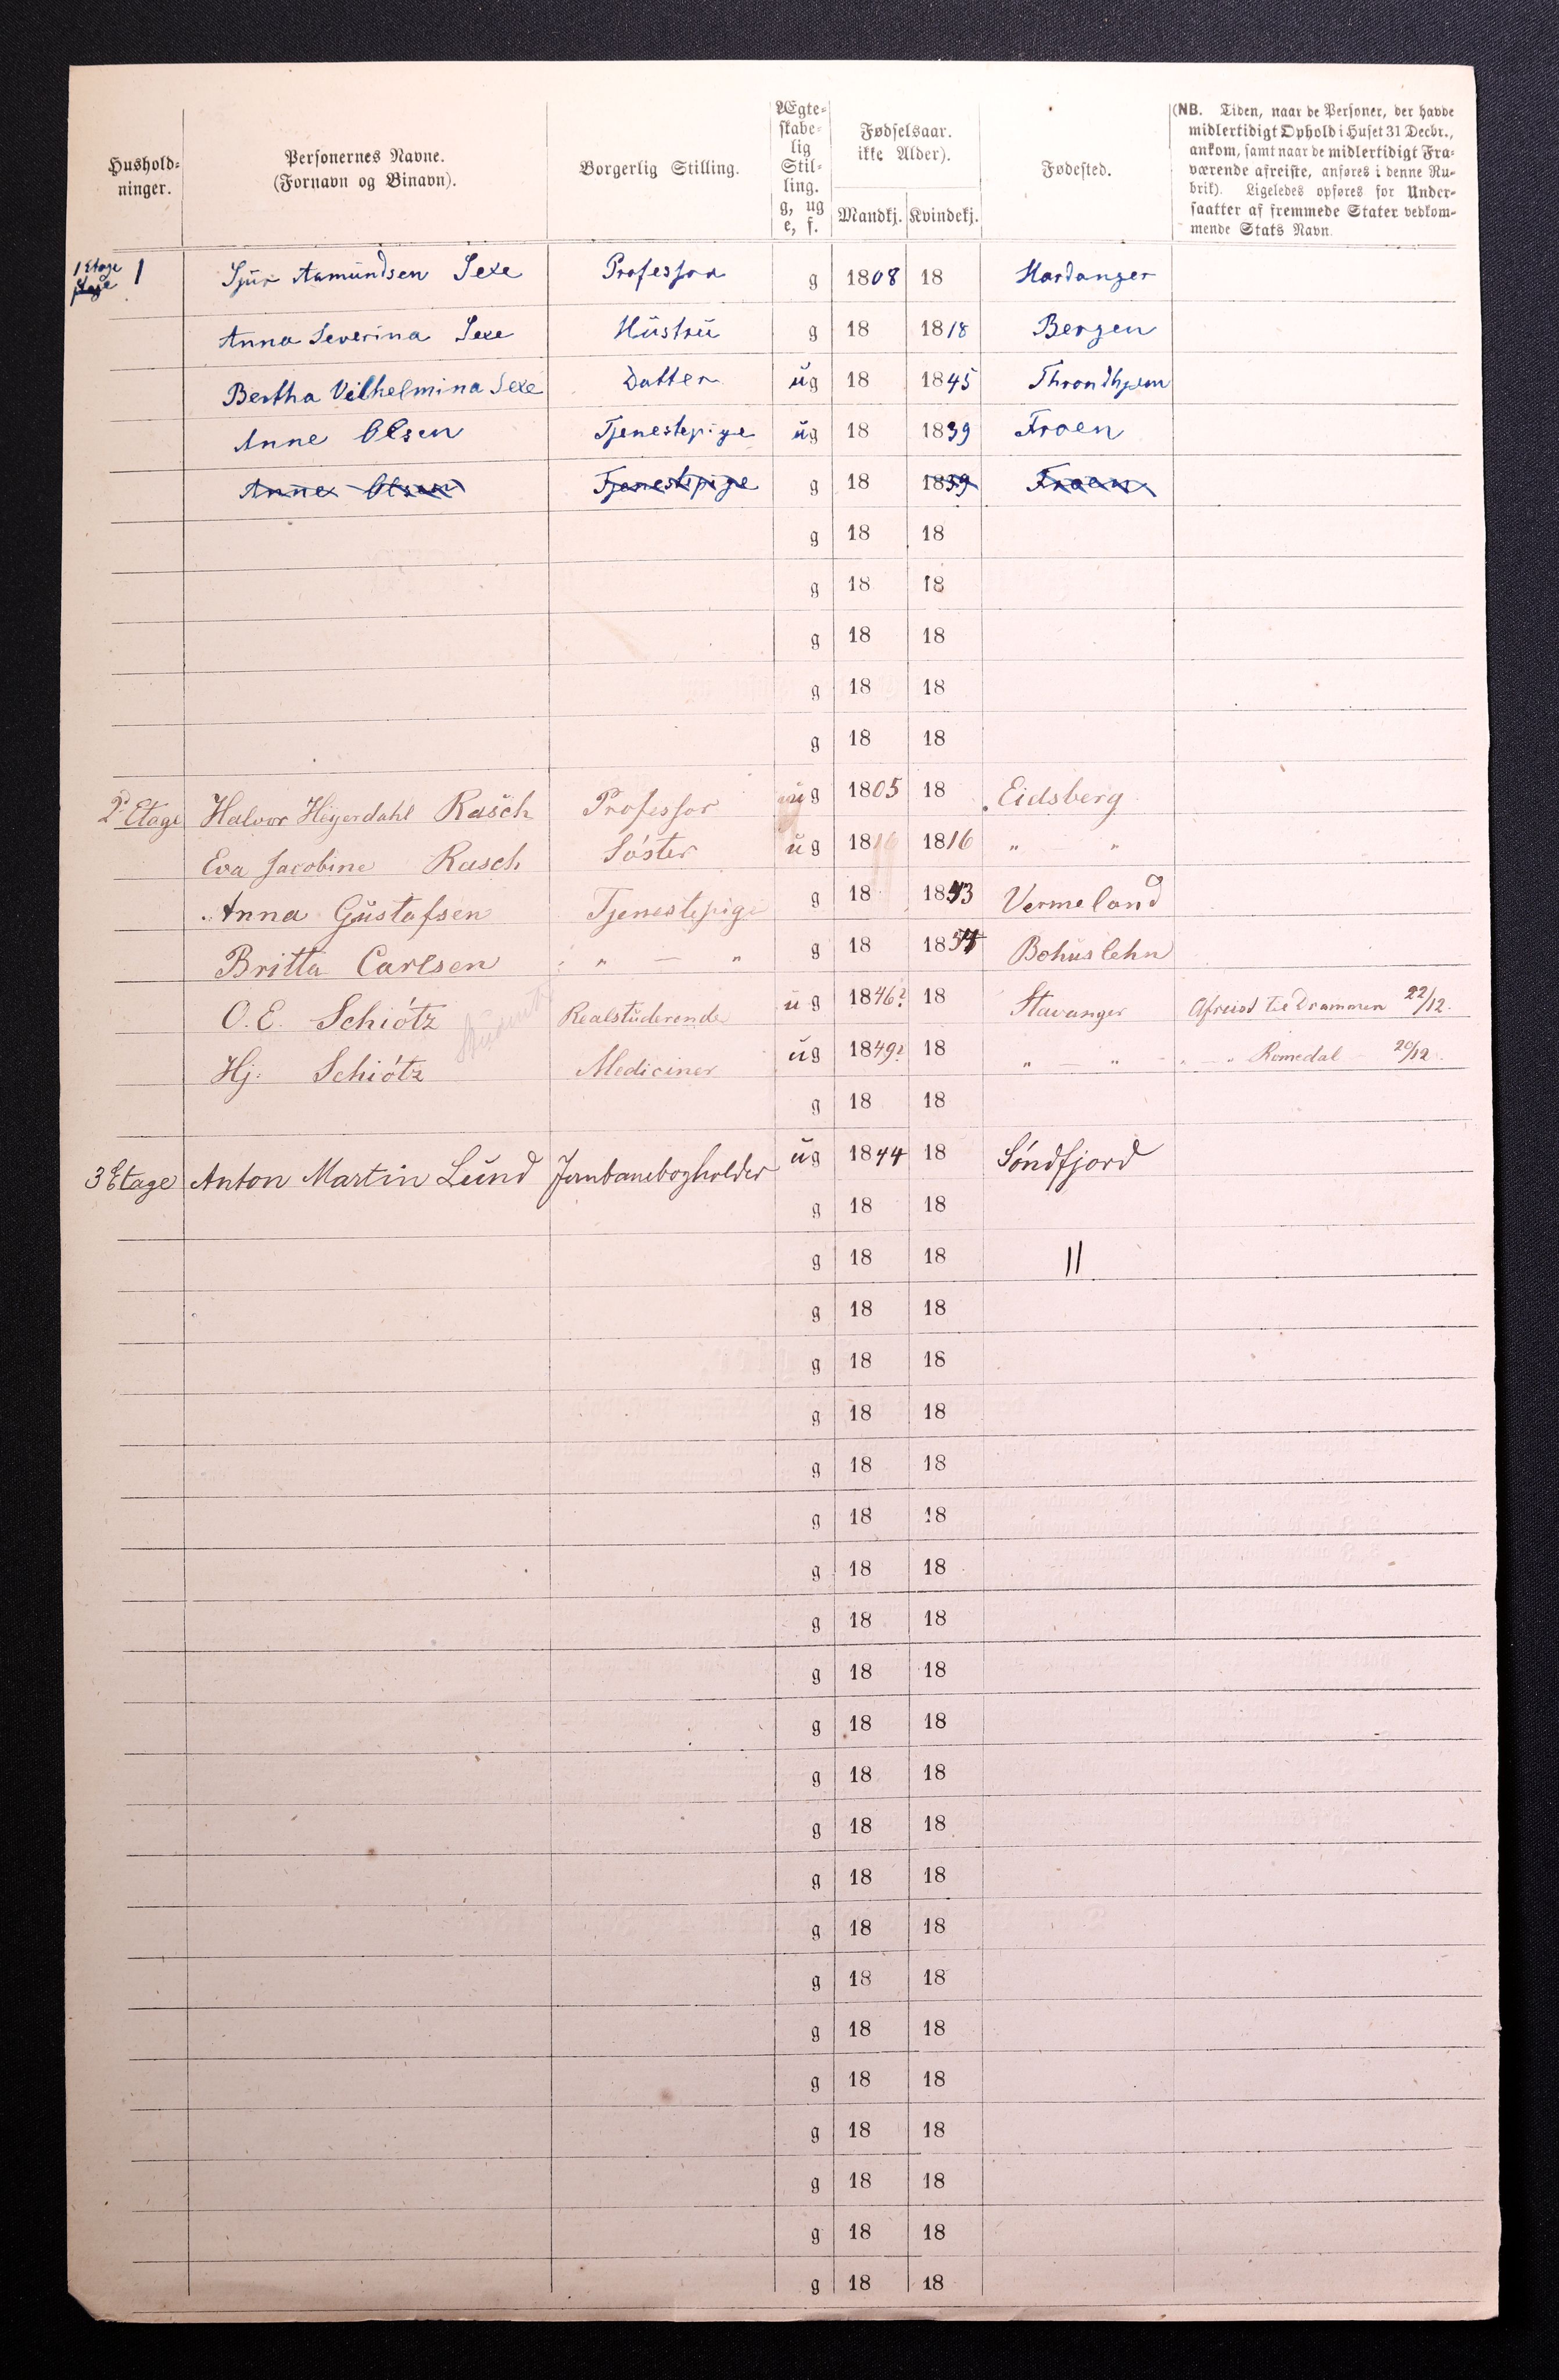 Hushold-
ninger.
Personernes Navne.
(Fornavn og Binavn).
Borgerlig Stilling.
Ægte-
skabe-
lig
Stil-
ling.
g, ug
e, f.
Fødselsaar.
ikke Alder).
Mandkj. Kvindekj.
Fødested.
(NB. Tiden, naar de Personer, der havde
midlertidigt Ophold i Huset 31 Decbr.,
ankom, samt naar de midlertidigt Fra-
værende afreiste, anføres i denne Ru-
brik). Ligeledes opføres for Under-
saatter af fremmede Stater vedkom-
mende Stats Navn.
1 Etage 1 Sjur Aamundsen Sexe Professor g 1808 18 Hardanger
Anna Severina Sexe Hustru g 18 1818 Bergen
Bertha Vilhelmina Sexe Datter ug 18 1845 Throndhjem
Anne Olsen Tjenestepige ug 18 1839 Froen
Anne Olsen Tjenestepige g 18 1839 Froen
g 18 18
g 18 18
g 18 18
g 18 18
g 18 18
2den Etage Halvor Heyerdahl Rasch Professor ug 1805 18 Eidsberg
Eva Jacobine Rasch Söster ug 1816 1816 " "
Anna Gustafsen Tjenestepige g 18 1843 Vermeland
Britta Carlsen " — " g 18 1834 Bohuslehn
O. E. Schiötz Student Realstuderende ug 1846? 18 Stavanger Afreist til Drammen 22/12.
Hj. Schiötz Mediciner ug 1849? 18 " — " - " — " Romedal 20/12.
g 18 18
3 Etage Anton Martin Lund Jernbanebogholder ug 1844 18 Söndfjord
g 18 18
g 18 18 11
g 18 18
g 18 18
g 18 18
g 18 18
g 18 18
g 18 18
g 18 18
g 18 18
g 18 18
g 18 18
g 18 18
g 18 18
g 18 18
g 18 18
g 18 18
g 18 18
g 18 18
g 18 18
g 18 18
g 18 18